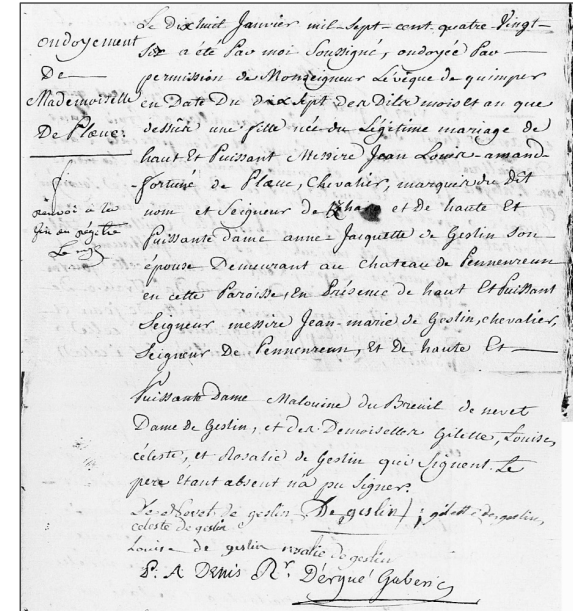 ondoyement
De
Mademoiselle
De Plœuc
renvoi a la
fin du régitre
Le
Le dixhuit Janvier mil-Sept-cent-quatre-Vingt-
Six a été Par moi Soussigné, ondoyée Par
permission de Monseigneur Levêque de quimper
en Date Du dix Sept des Dits mois et an que
dessûs une fille née du Légitime mariage de
haut Et Puissant Messire Jean Louis-amand-
fortuné de Plœuc, Chevalier, marquis du dEt
nom et Seigneur de et de haute Et
Puissante dame anne-Jaquette de Geslin Son
épouse Demeurant au Chateau de Pennenreun
en cette Paroisse, En Présence de haut Et Puissant
Seigneur messire Jean-marie de Geslin, chevalier,
Seigneur De Pennenreun, Et De haute Et
Puissante Dame Malouine du Breuil de nevet
Dame de Geslin, et des Demoiselles Gilette, Louise,
céleste, et Rosalie de Geslin qui Signent. Le
pere Etant absent n'a pu Signer.
De Nevet de geslin De geslin ; gilette de geslin,
celeste de geslin
Louise de geslin rosalie de geslin
P. A Denis Rr. D'ergué Gaberic